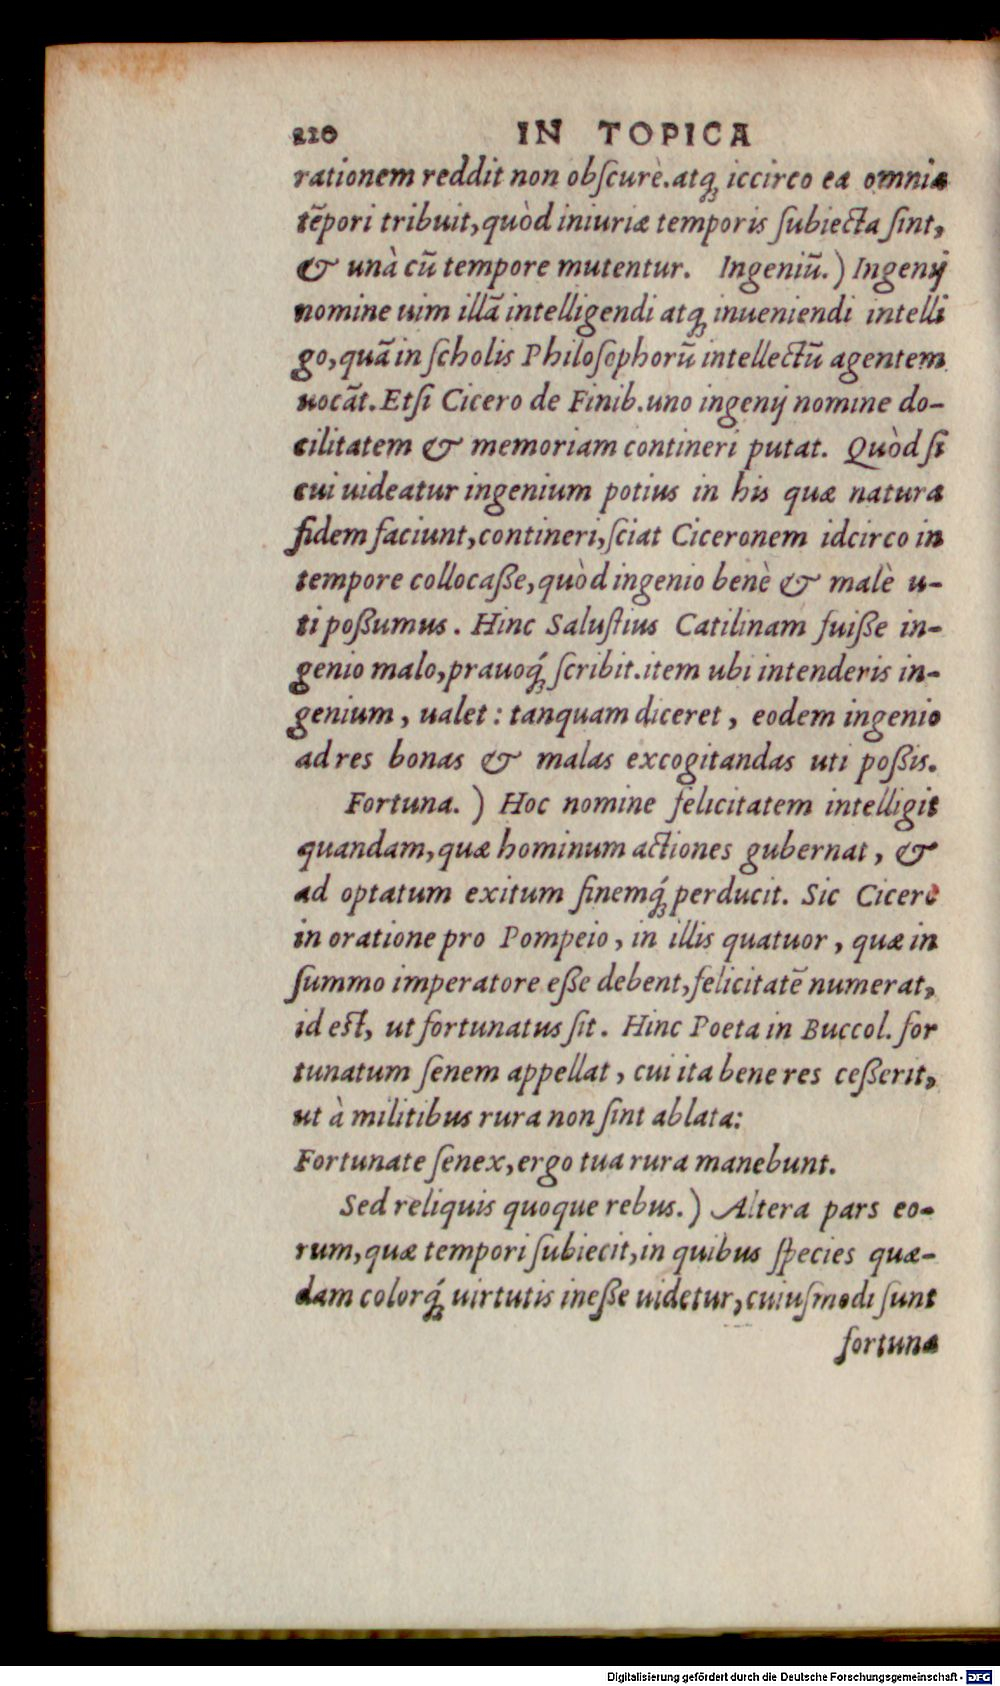 220 IN TOPICA
rationem reddit non obſcurè.atq; iccirco ea omnia
tẽpori tribuit,quòd iniuriæ temporis ſubiecta ſint,
& unà cũ tempore mutentur. Ingeniũ.) Ingenij
nomine uim illã intelligendi atq; inueniendi intelli
go,quã in ſcholis Philoſophorũ intellectũ agentem
uocãt.Etſi Cicero de Finib.uno ingenij nomine do-
cilitatem & memoriam contineri putat. Quòd ſi
cui uideatur ingenium potius in his quæ natura
fidem faciunt,contineri,ſciat Ciceronem idcirco in
tempore collocaſſe,quòd ingenio benè & malè u-
ti poſſumus. Hinc Saluſtius Catilinam fuiſſe in-
genio malo,prauoq́; ſcribit.item ubi intenderis in-
genium, ualet: tanquam diceret, eodem ingenio
ad res bonas & malas excogitandas uti poſſis.
Fortuna.) Hoc nomine felicitatem intelligit
quandam,quæ hominum actiones gubernat, &
ad optatum exitum finemq́; perducit. Sic Cicero
in oratione pro Pompeio, in illis quatuor, quæ in
ſummo imperatore eſſe debent,felicitatẽ numerat,
id eſt, ut fortunatus ſit. Hinc Poeta in Buccol. for
tunatum ſenem appellat, cui ita bene res ceſſerit,
ut à militibus rura non ſint ablata:
Fortunate ſenex,ergo tua rura manebunt.
Sed reliquis quoque rebus.) Altera pars eo-
rum,quæ tempori ſubiecit,in quibus ſpecies quæ-
dam colorq́; uirtutis ineſſe uidetur,cuiuſmodi ſunt
fortuna
Digitalisierung gefördert durch die Deutsche Forschungsgemeinschaft - DFG